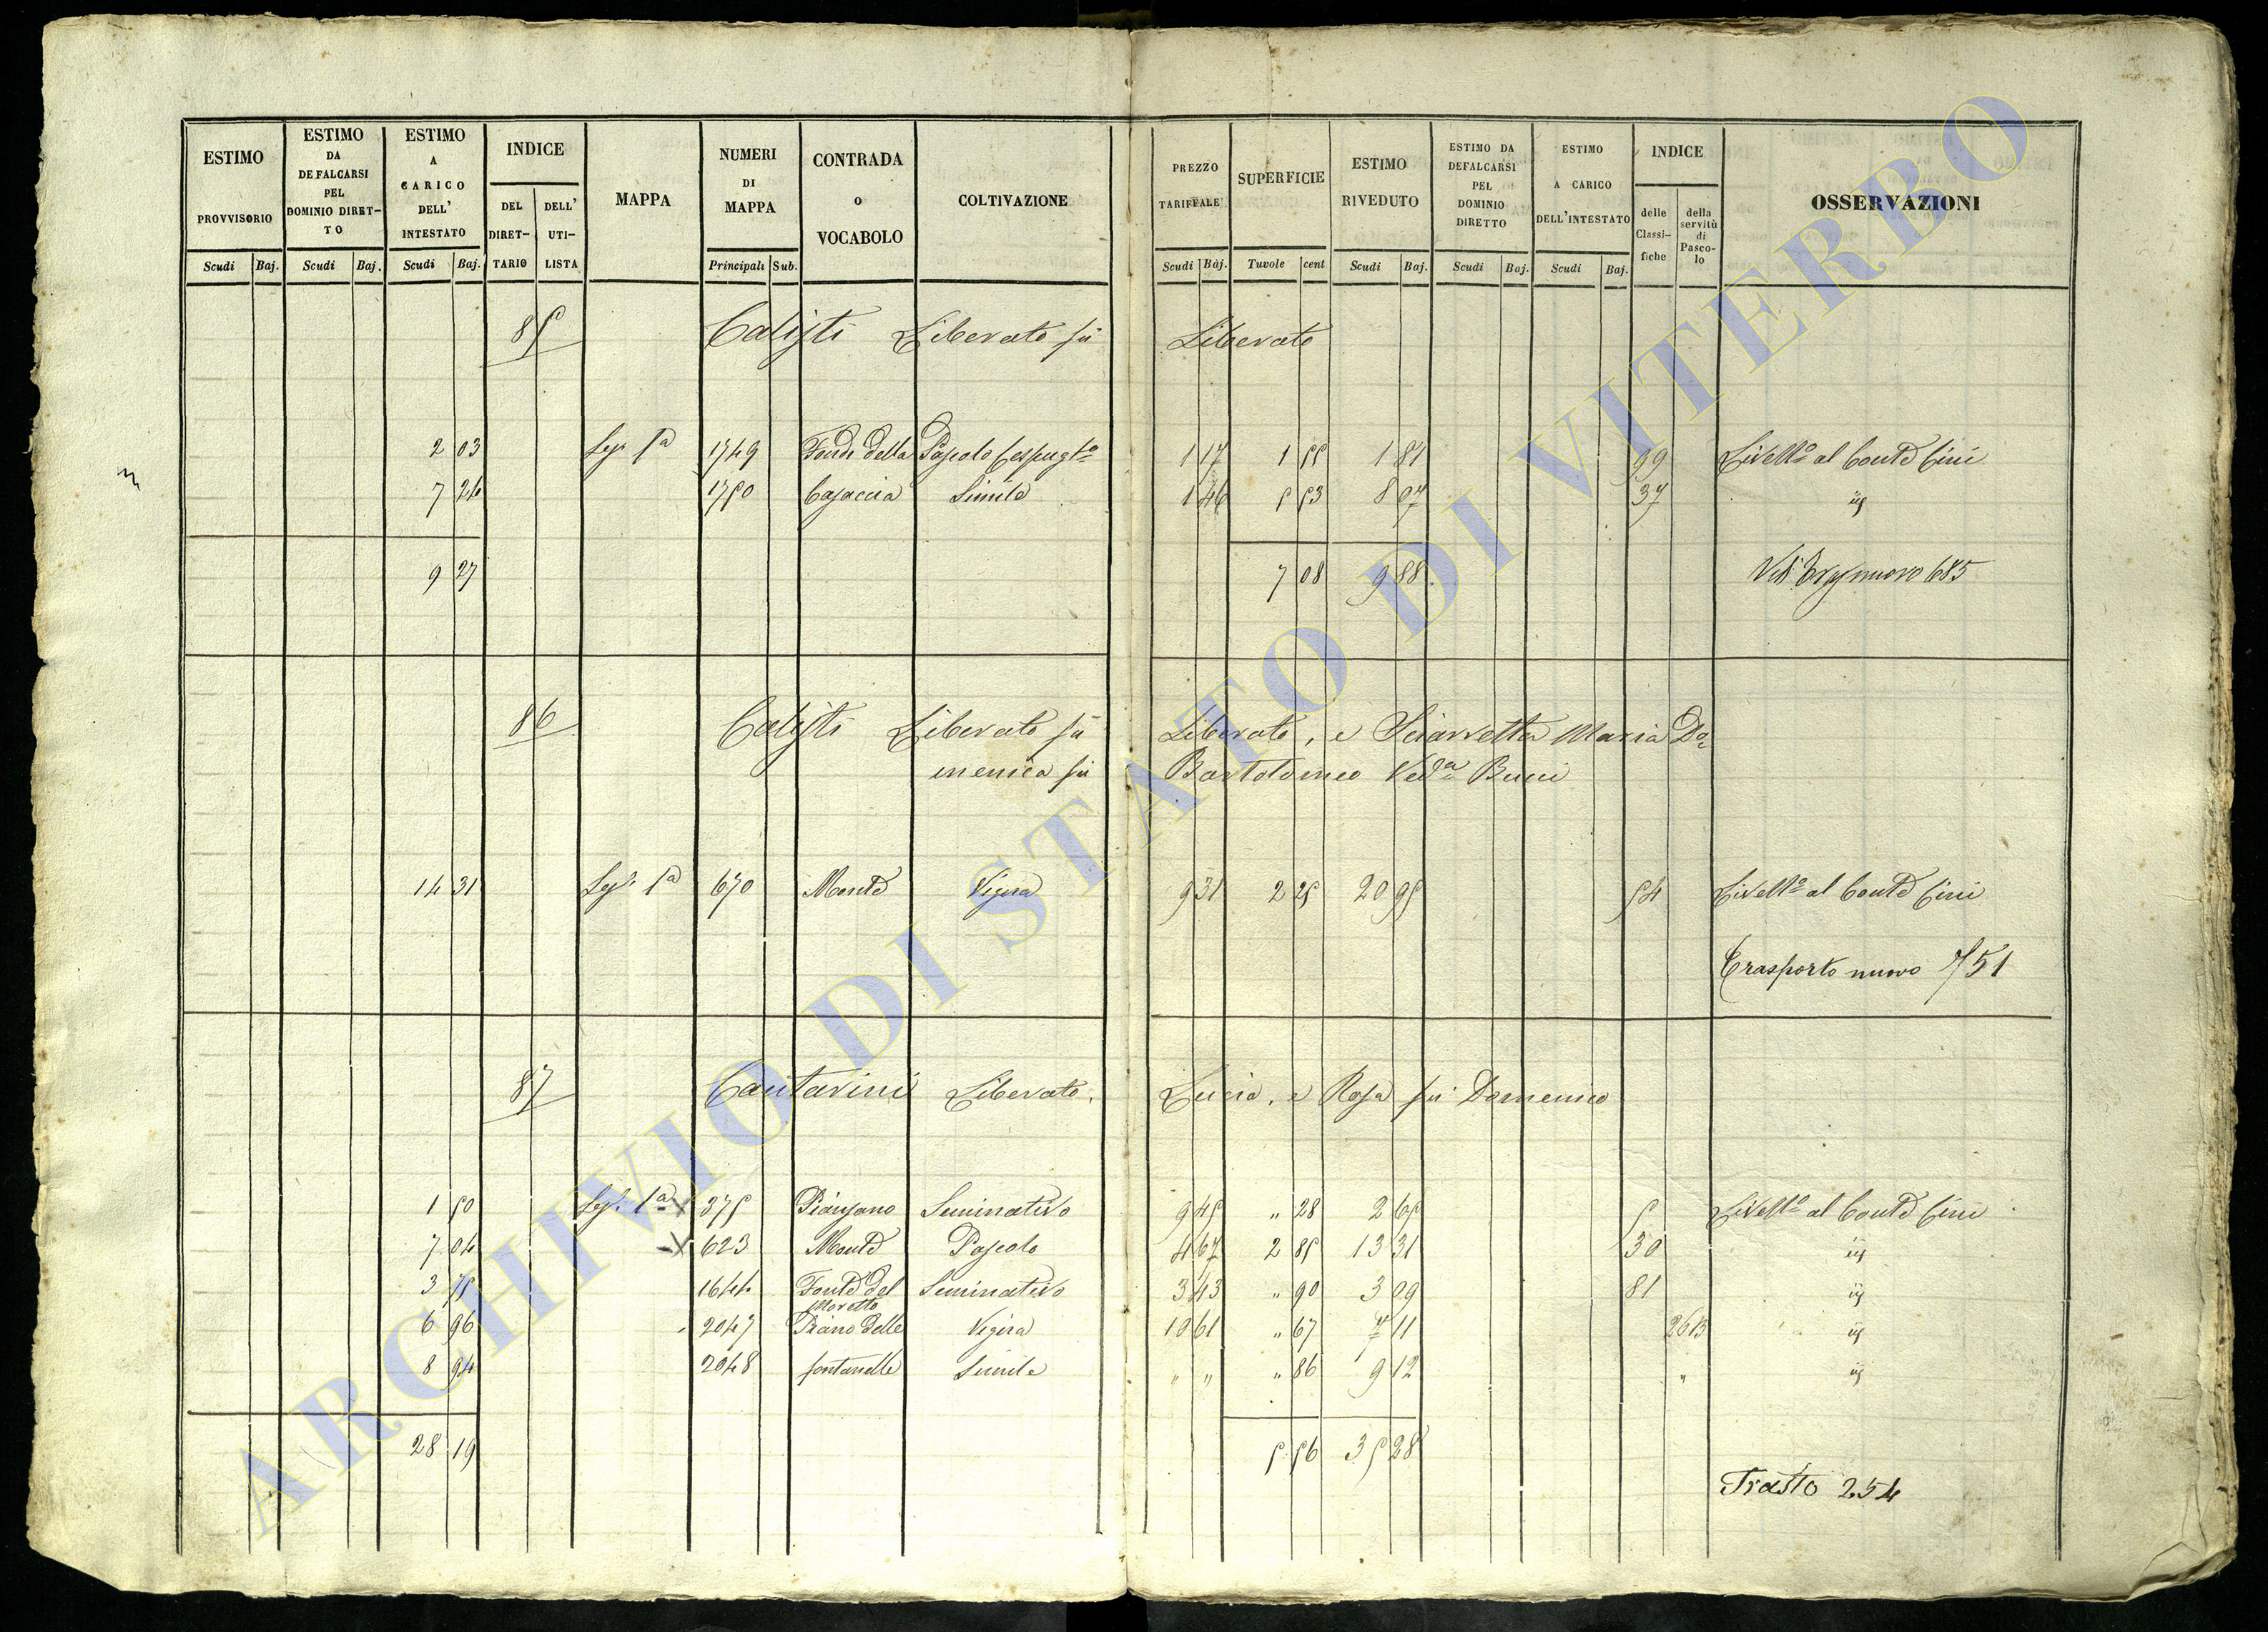 ESTIMO PROVVISORIO Scudi Baj.
ESTIMO DA DEFALCARSI PEL DOMINIO DIRET-TO Scudi Baj.
ESTIMO A CARICO DELL' INTESTATO Scudi Baj.
INDICE DEL DIRET-TARIO DELL' UTI-LISTA
MAPPA
NUMERI DI MAPPA Principali Sub.
CONTRADA O VOCABOLO
COLTIVAZIONE
PREZZO TARIFFALE Scudi Baj.
SUPERFICIE Tavole cent
ESTIMO RIVEDUTO Scudi Baj.
ESTIMO DA DEFALCARSI PEL DOMINIO DIRETTO Scudi Baj.
ESTIMO A CARICO DELL'INTESTATO Scudi Baj.
INDICE delle Classi-fiche della servitù di Pasco-lo
OSSERVAZIONI
85 Calisti Liberato fù Liberato
2 03 Sez. 1a 1749 Fonte della Pascolo Cespugto 1 17 1 55 1 81 99 Livello al Conte Cini
7 24 1750 Casaccia Simile 1 46 5 53 8 07 37 id
9 27 7 08 9 88 Vedi Traspnuovo 685
86 Calisti Liberato fù Liberato, e Sciarretta Maria Do-
menica fù Bartolomeo Veda Bucci
14 31 Sez. 1a 670 Monte Vigna 9 31 2 25 20 95 54 Livello al Conte Cini
Trasporto nuovo 751
87 Cantarini Liberato, Lucia, e Rosa fù Domenico
1 50 Sez. 1a 375 Piansano Seminativo 9 45 " 28 2 65 5 Livello al Conte Cini
7 04 623 Monte Pascolo 4 67 2 85 13 31 30 id
3 75 1644 Fonte del Moretto Seminativo 3 43 " 90 3 09 81 id
6 96 2047 Piano delle Vigna 10 61 " 67 7 11 2613 id
8 94 2048 fontanelle Simile " " " 86 9 12 " id
28 19 5 56 35 28
Trasto 254
ARCHIVIO DI STATO DI VITERBO